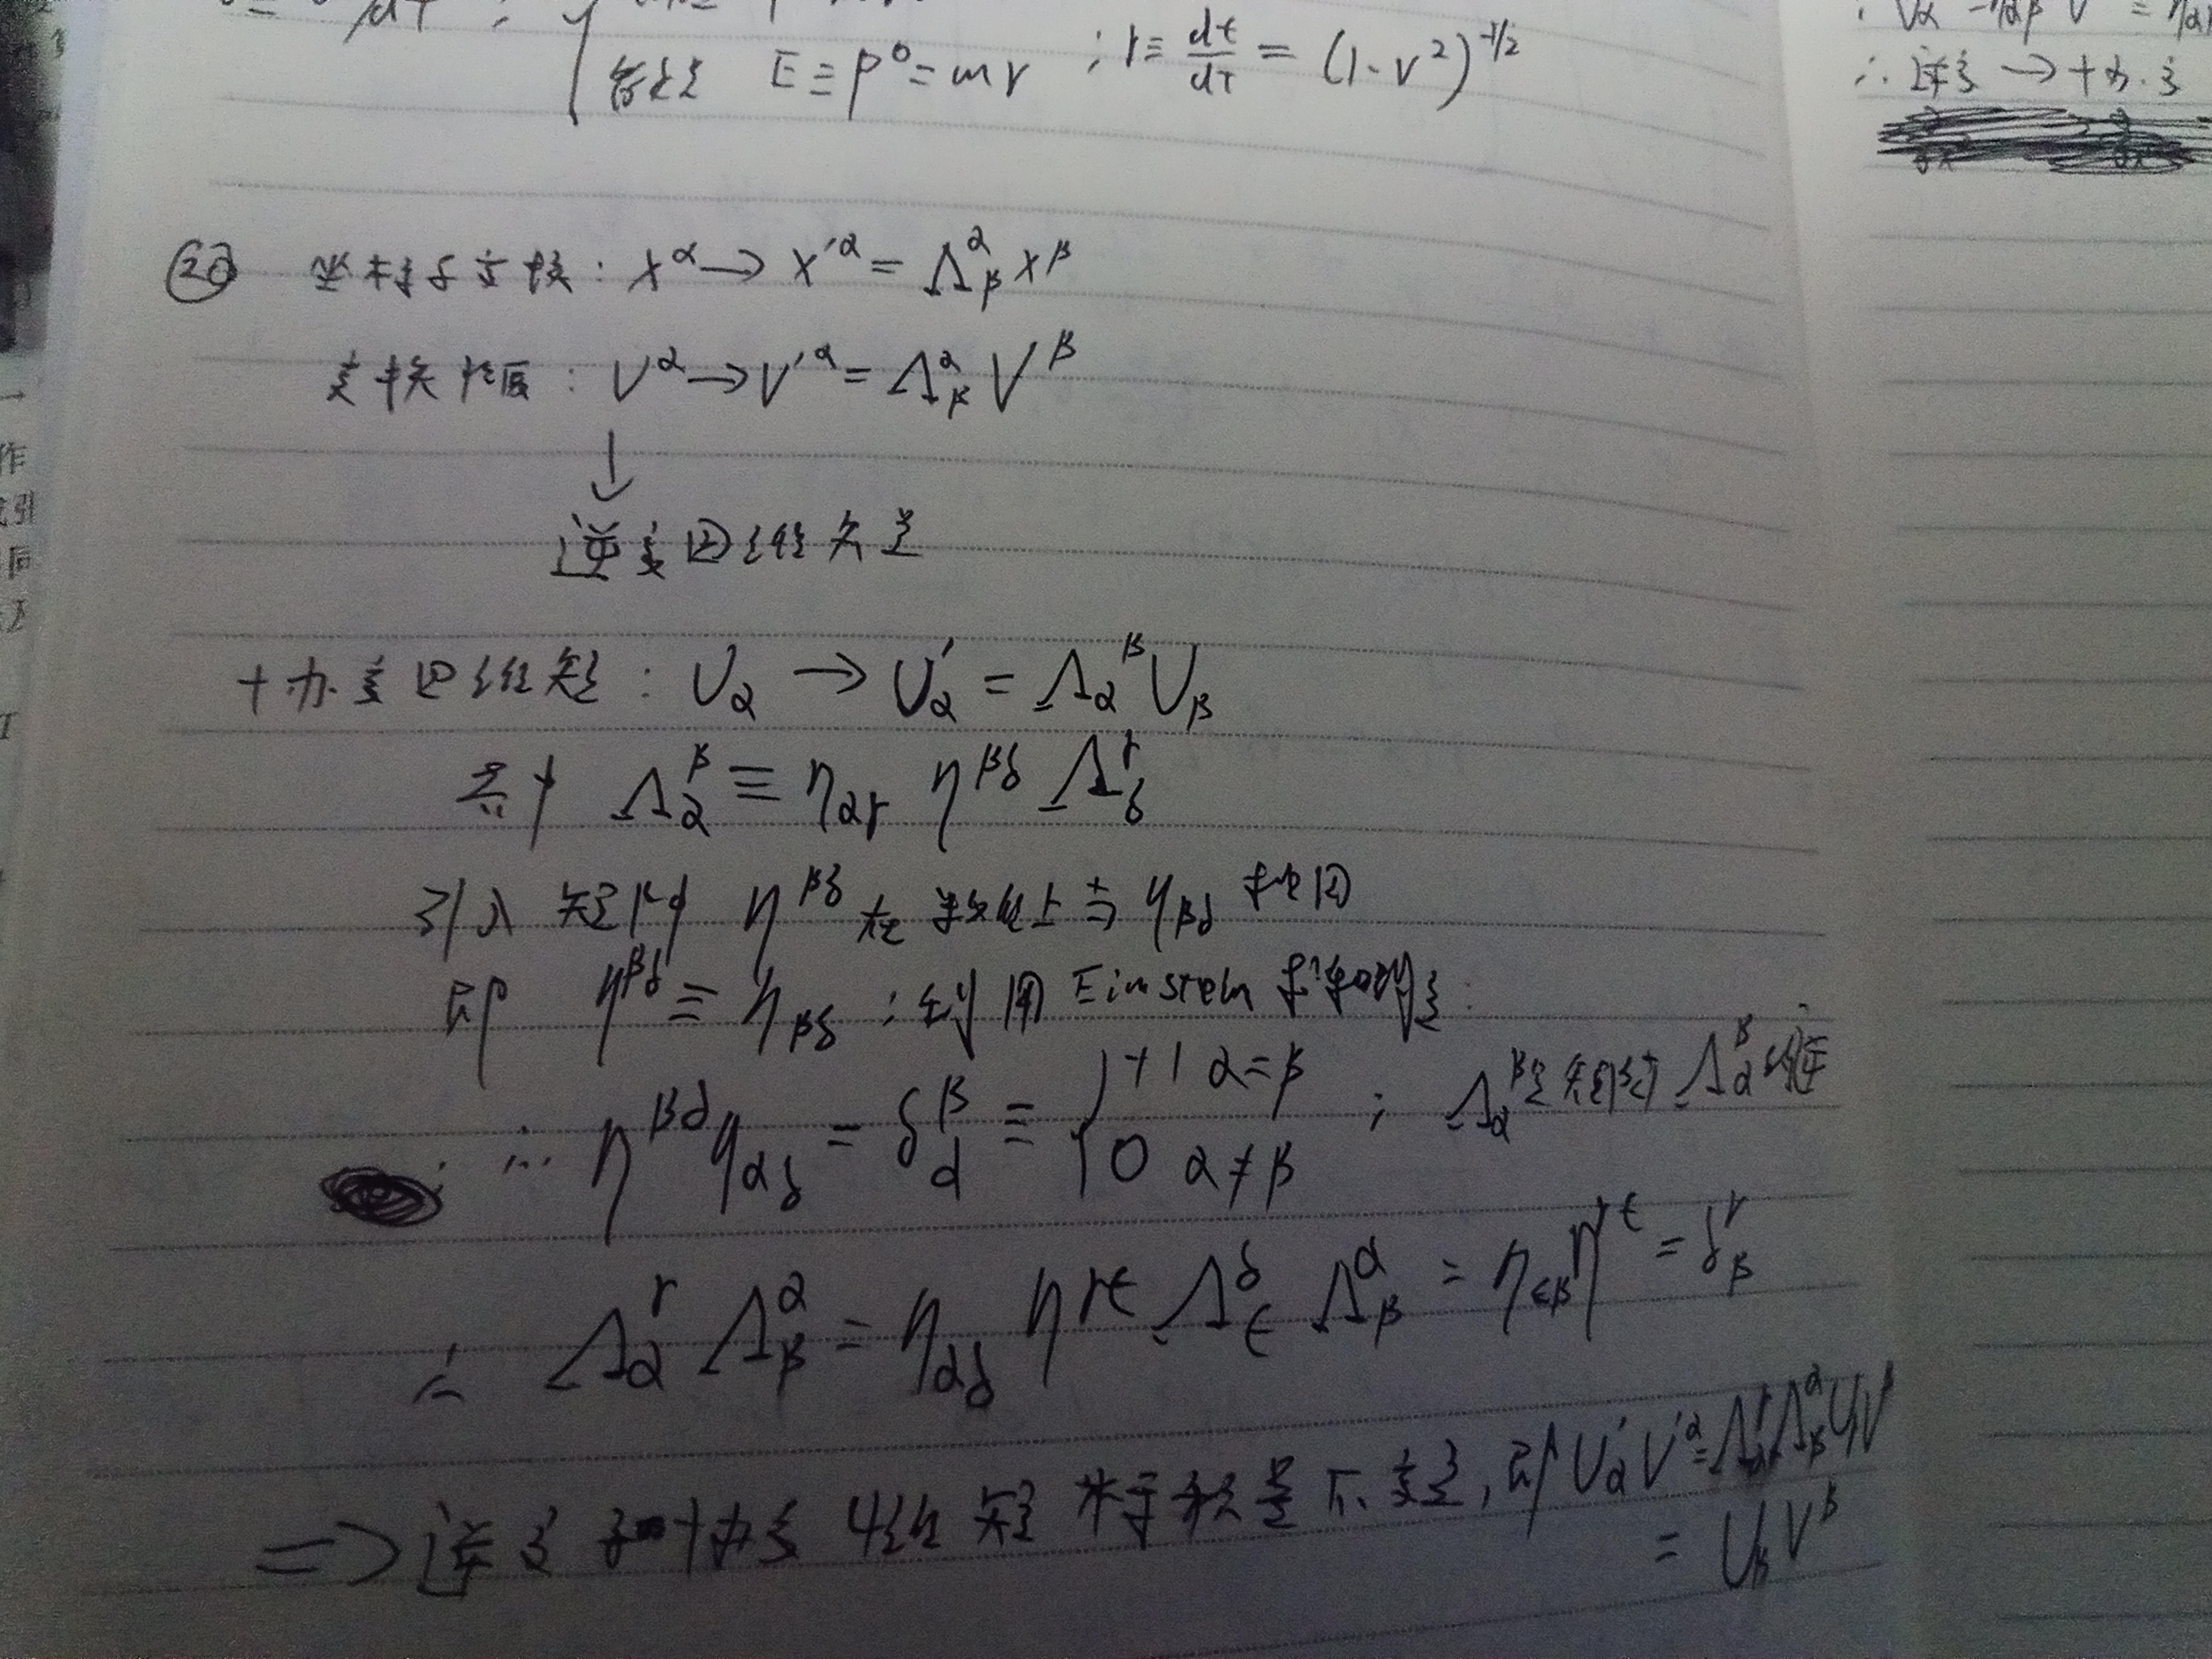 能量 E ≡ p⁰ = mγ ; γ ≡ dt/dτ = (1-v²)^(-1/2)
∴ 逆变 → 协变
⑳ 坐标系变换: x^α → x'^α = Λ^α_β x^β
变换性质: V^α → V'^α = Λ^α_β V^β
↓
逆变四维矢量
协变四维矢: U_α → U'_α = Λ_α^β U_β
其中 Λ_α^β ≡ η_αγ η^βδ Λ^γ_δ
引入矩阵 η^βδ 在数值上与 η_βδ 相同
即 η^βδ ≡ η_βδ ; 利用 Einstein 求和约定:
∴ η^βδ η_αδ = δ^β_α ≡ { +1 α=β ; Λ_α^β 是矩阵 Λ^β_α 的逆
0 α≠β
∴ Λ_α^γ Λ^α_β = η_αδ η^γε Λ^δ_ε Λ^α_β = η_εβ η^γε = δ^γ_β
⇒ 逆变和协变4维矢标积是不变量, 即 U'_α V'^α = Λ_α^γ Λ^α_β U_γ V^β
= U_β V^β
作
引
同